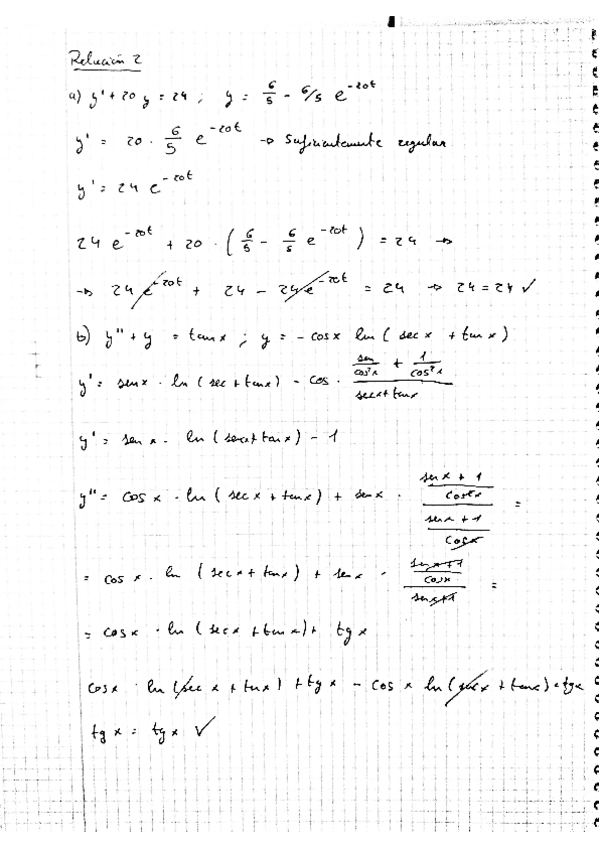 Relación 2
a) y' + 20 y = 24 ; y = 6/5 - 6/5 e^{-20t}
y' = 20 · 6/5 e^{-20t} → Suficientemente regular
y' = 24 e^{-20t}
24 e^{-20t} + 20 · ( 6/5 - 6/5 e^{-20t} ) = 24 →
→ 24 e^{-20t} + 24 - 24 e^{-20t} = 24 → 24 = 24 ✓
b) y'' + y = tan x ; y = - cos x ln ( sec x + tan x )
y' = sen x · ln ( sec + tan x ) - cos · (sen/cos²x + 1/cos²x)/(sec x + tan x)
y' = sen x · ln ( sec x + tan x ) - 1
y'' = cos x · ln ( sec x + tan x ) + sen x · ((sen x + 1)/cos²x)/((sen x + 1)/cos x) =
= cos x · ln ( sec x + tan x ) + sen x · ((sen x + 1)/cos x)/(sen x + 1) =
= cos x · ln ( sec x + tan x ) + tg x
cos x · ln ( sec x + tan x ) + tg x - cos x ln ( sec x + tan x ) = tg x
tg x = tg x ✓